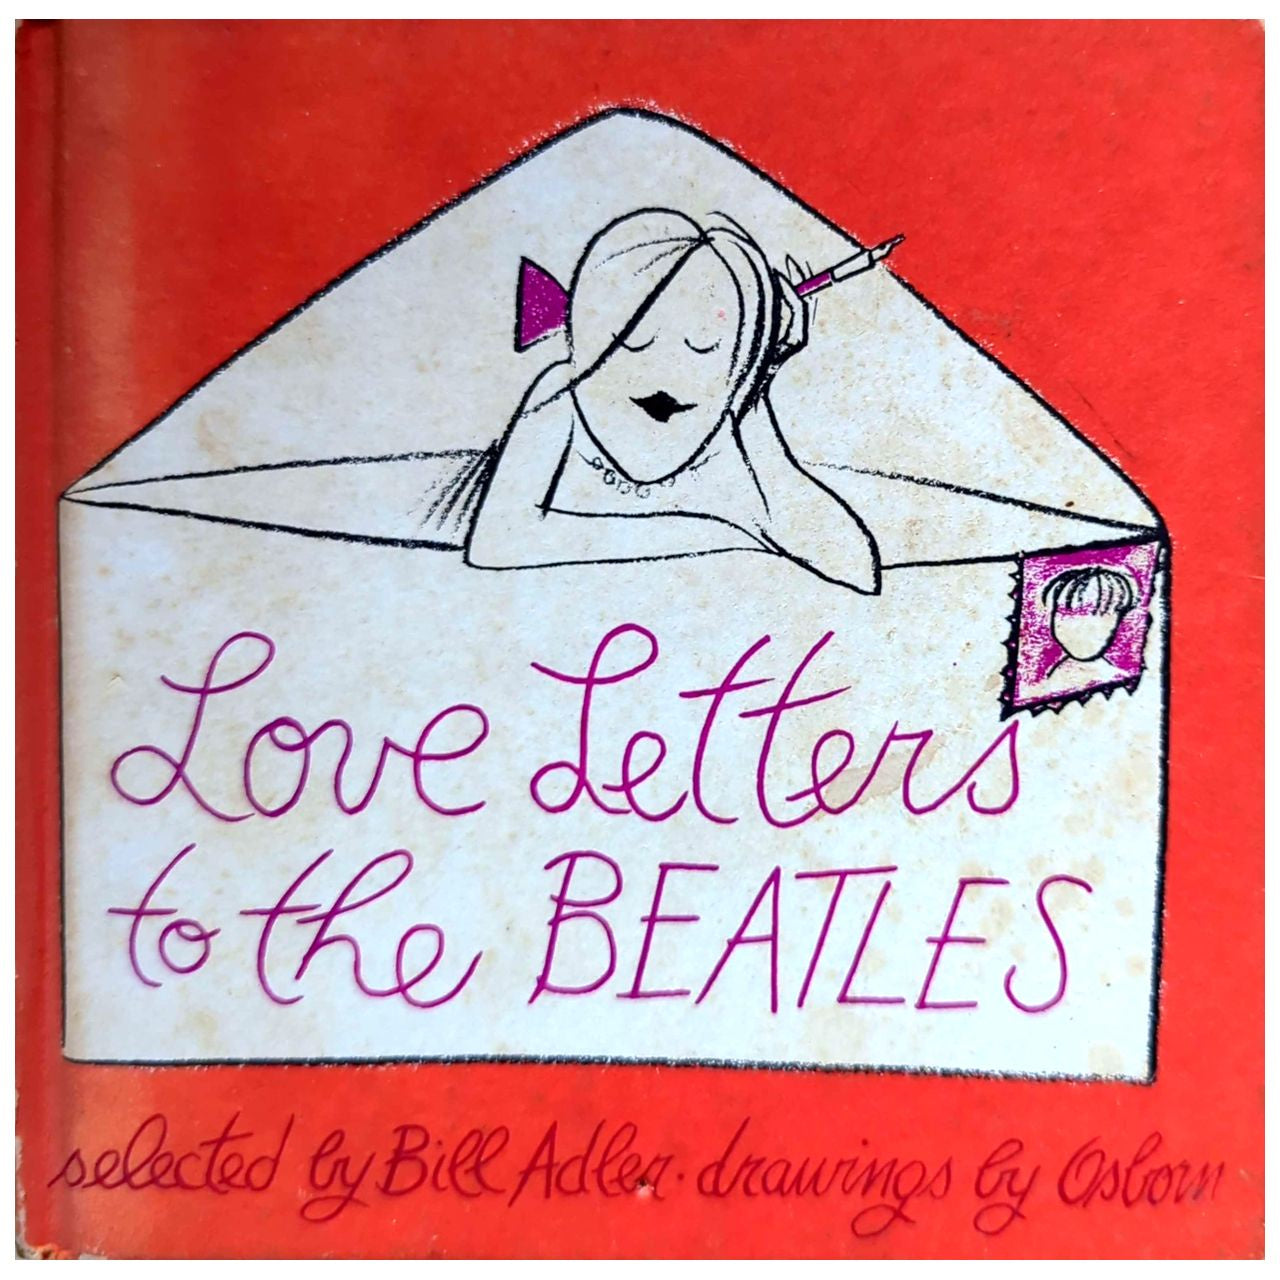 Love Letters
to the BEATLES
selected by Bill Adler. drawings by Osborn